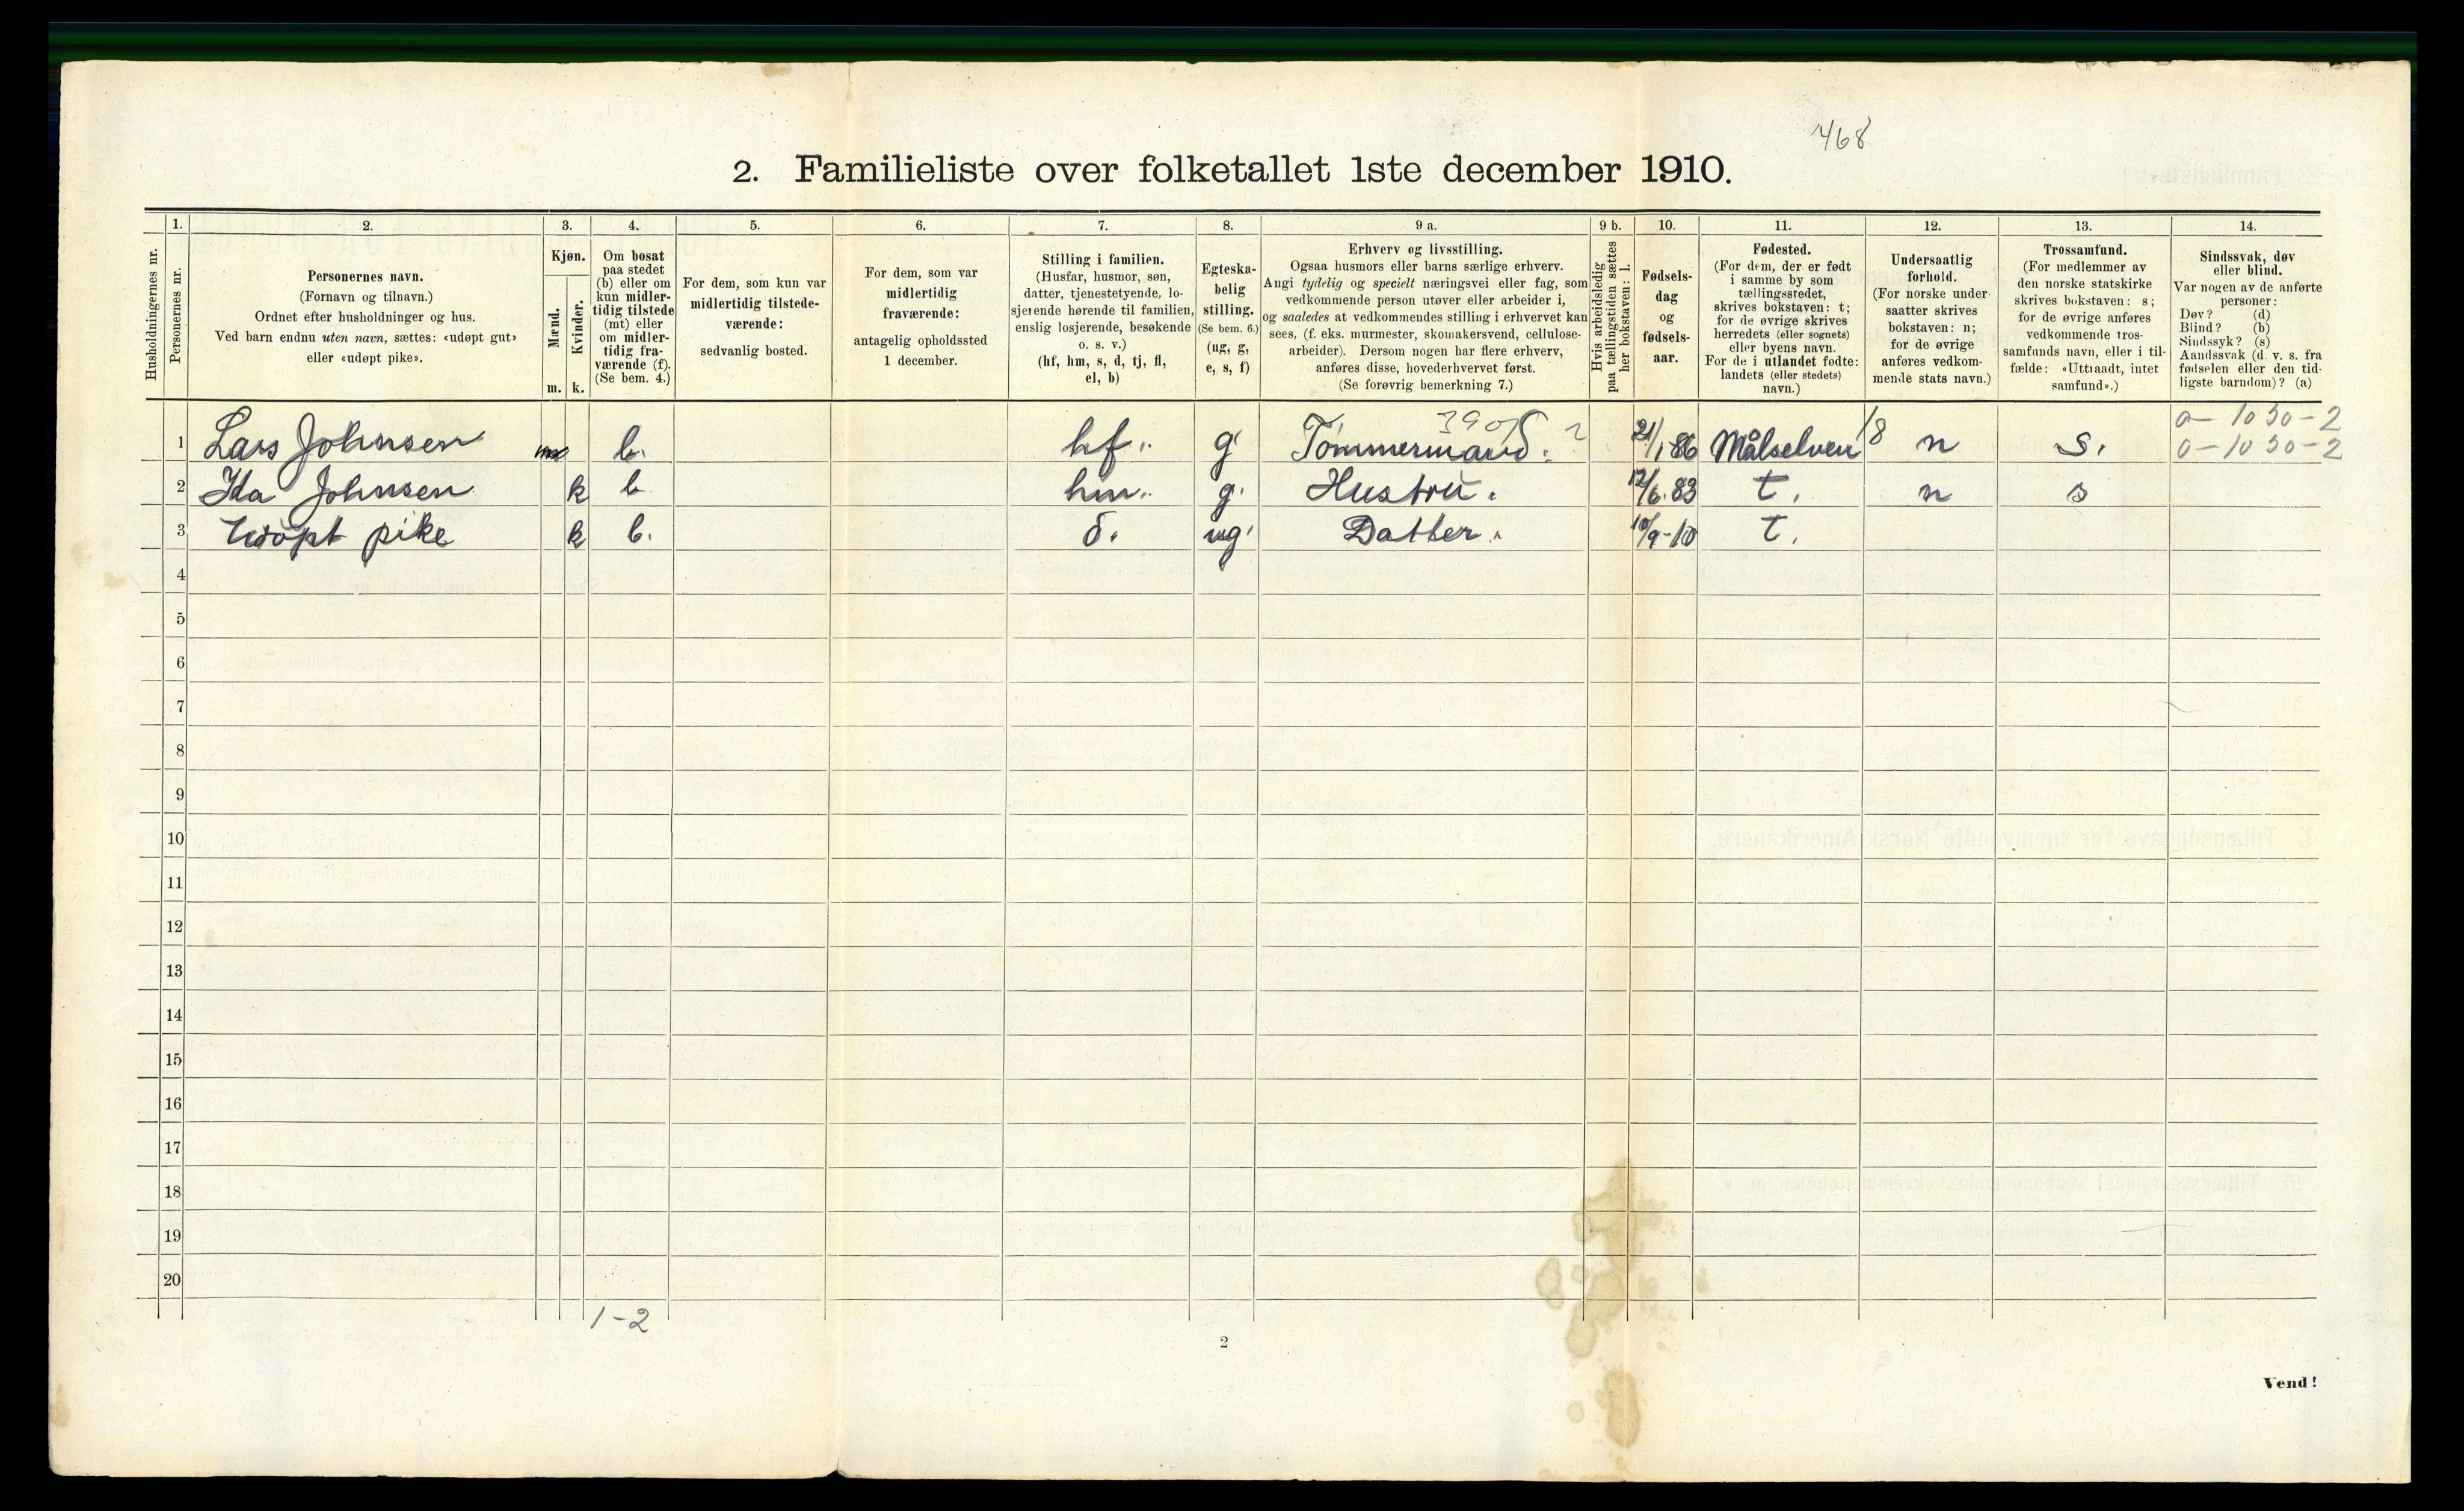 468
2. Familieliste over folketallet 1ste december 1910.
Husholdningernes nr.
1.
Personernes nr.
2.
Personernes navn.
(Fornavn og tilnavn.)
Ordnet efter husholdninger og hus.
Ved barn endnu uten navn, sættes: «udøpt gut»
eller «udøpt pike».
3.
Kjøn.
Mænd.
m.
Kvinder.
k.
4.
Om bosat
paa stedet
(b) eller om
kun midler-
tidig tilstede
(mt) eller
om midler-
tidig fra-
værende (f).
(Se bem. 4.)
5.
For dem, som kun var
midlertidig tilstede-
værende:
sedvanlig bosted.
6.
For dem, som var
midlertidig
fraværende:
antagelig opholdssted
1 december.
7.
Stilling i familien.
(Husfar, husmor, søn,
datter, tjenestetyende, lo-
sjerende hørende til familien,
enslig losjerende, besøkende
o. s. v.)
(hf, hm, s, d, tj, fl,
el, b)
8.
Egteska-
belig
stilling.
(Se bem. 6.)
(ug, g,
e, s, f)
9 a.
Erhverv og livsstilling.
Ogsaa husmors eller barns særlige erhverv.
Angi tydelig og specielt næringsvei eller fag, som
vedkommende person utøver eller arbeider i,
og saaledes at vedkommendes stilling i erhvervet kan
sees, (f. eks. murmester, skomakersvend, cellulose-
arbeider). Dersom nogen har flere erhverv,
anføres disse, hovederhvervet først.
(Se forøvrig bemerkning 7.)
9 b.
Hvis arbeidsledig
paa tællingstiden sættes
her bokstaven: l.
10.
Fødsels-
dag
og
fødsels-
aar.
11.
Fødested.
(For dem, der er født
i samme by som
tællingsstedet,
skrives bokstaven: t;
for de øvrige skrives
herredets (eller sognets)
eller byens navn.
For de i utlandet fødte:
landets (eller stedets)
navn.)
12.
Undersaatlig
forhold.
(For norske under-
saatter skrives
bokstaven: n;
for de øvrige
anføres vedkom-
mende stats navn.)
13.
Trossamfund.
(For medlemmer av
den norske statskirke
skrives bokstaven: s;
for de øvrige anføres
vedkommende tros-
samfunds navn, eller i til-
fælde: «Uttraadt, intet
samfund».)
14.
Sindssvak, døv
eller blind.
Var nogen av de anførte
personer:
Døv? (d)
Blind? (b)
Sindssyk? (s)
Aandssvak (d. v. s. fra
fødselen eller den tid-
ligste barndom)? (a)
0 - 10 30 - 2
1 Lars Johnsen m b. hf. g. Tömmermand. 21/1 86 Målselven 18 n s. 0 - 10 30 - 2
2 Ida Johnsen k b hm. g. Hustru. 12/6.83 t. n s
3 Udöpt pike k b. d. ug. Datter. 10/9-10 t.
4
5
6
7
8
9
10
11
12
13
14
15
16
17
18
19
20
1 - 2
2
Vend!